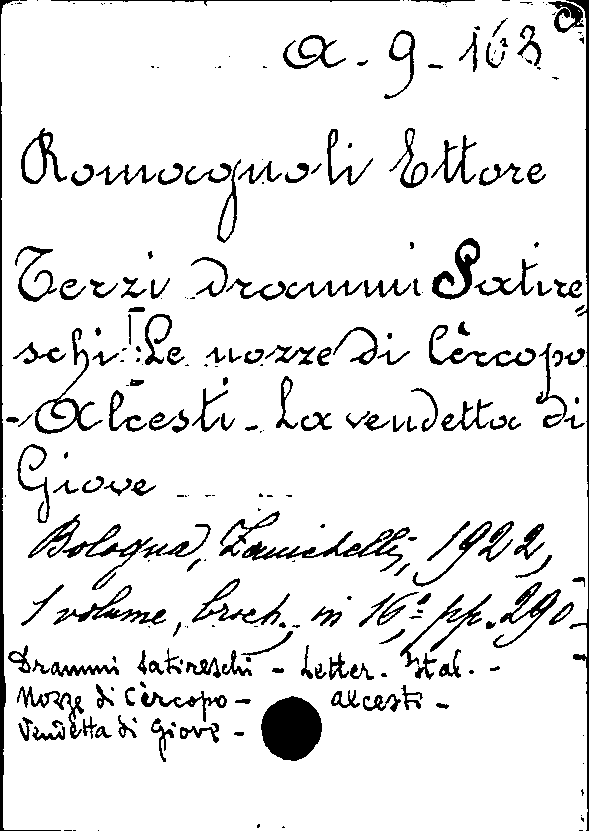 A. 9 - 163 C
Romagnoli Ettore
Terzi drammi Satire=
schi: Le nozze di Cèrcopo
- Alcesti - La vendetta di
Giove
Bologna, Zanichelli, 1922,
1 volume, broch., in 16º pp. 290 -
Drammi satireschi - Letter. Ital. -
Nozze di Cèrcopo - Alcesti -
Vendetta di Giove -